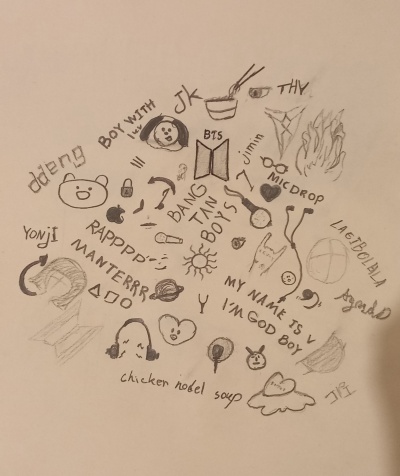 JK
THV
BOY WITH
luv
BTS
jimin
ddeng
7
MICDROP
BANG
TAN
BOYS
YONJI
RAPPPP
MANTERRR
LAGIBOLBLA
AgustD
MY NAME IS V
I'M GOD BOY
chicken nodel soup